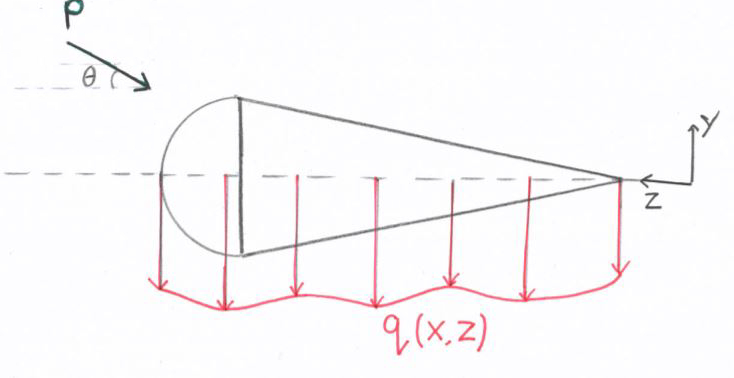 P
θ
y
z
q(x,z)